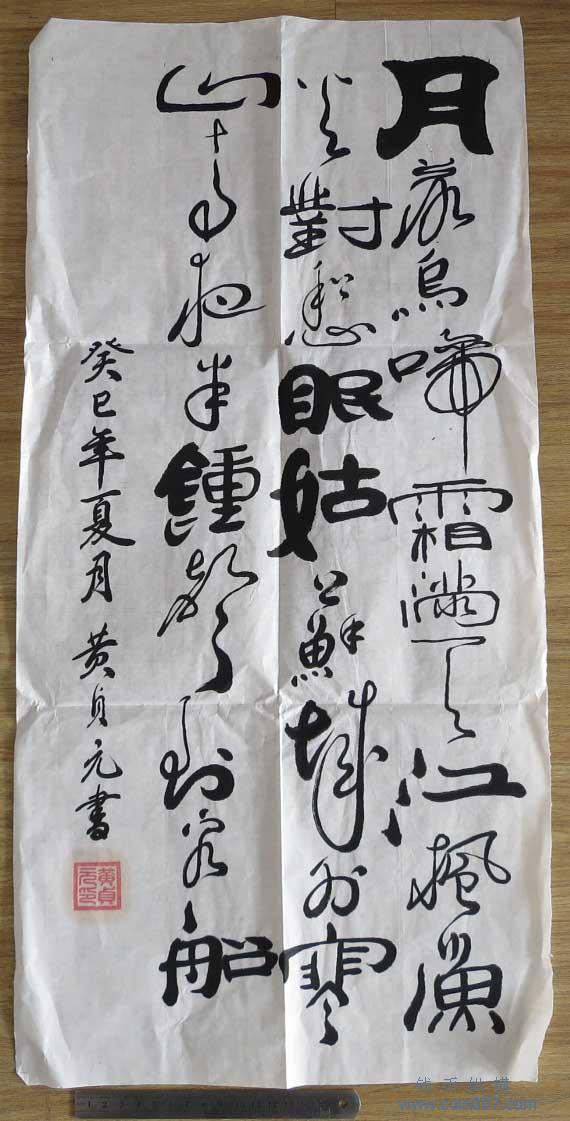 月落烏啼霜滿天江楓漁
火對愁眠姑蘇城外寒
山寺夜半鍾聲到客船
癸巳年夏月黄貞元書
黄貞元印